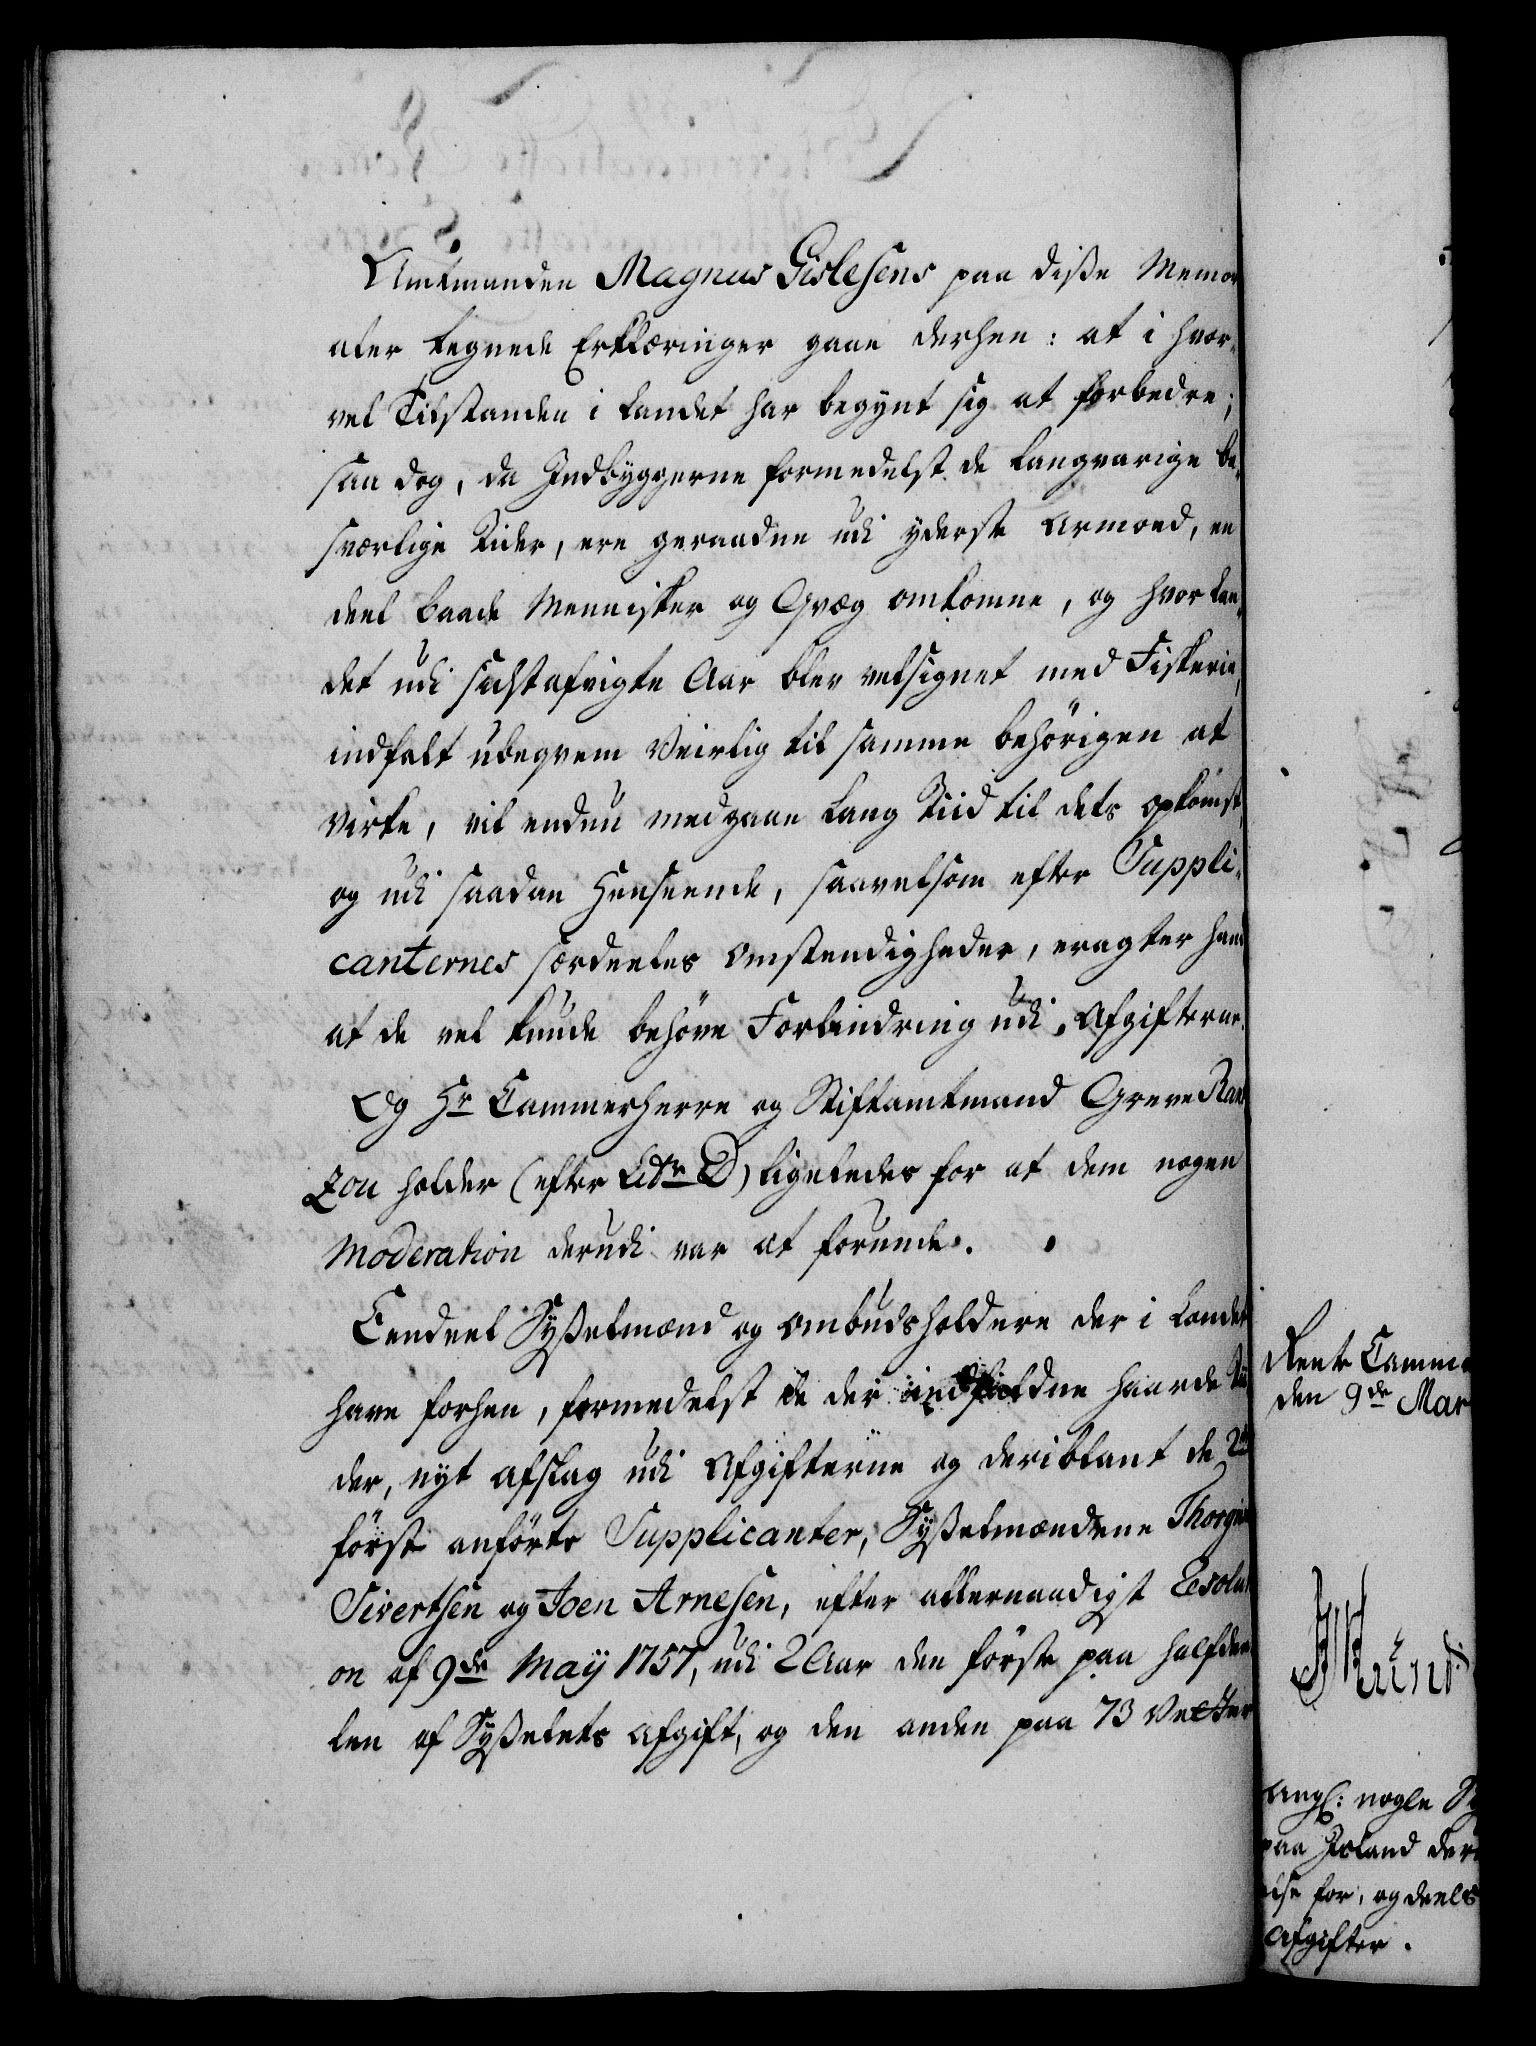 Amtmanden Magnus Gislesens paa diße Memori
aler tegnede Erklæringer gaae derhen: at i hvor-
vel Tilstanden i Landet har begynt sig at forbedre;
saa dog, da Indbyggerne formedelst de langvarige be-
sværlige Tider, ere geraadne udi yderste Armoed, en
deel baade Mennisker og Qvæg omkomne, og hvor Lan-
det udi sidstafvigte Aar blev velsignet med Fiskerie,
indfalt ubeqvem Veirlig til samme behörigen at
virke, vil endnu medgaae lang Tiid til dets opkomst,
og udi saadan Henseende, saavelsom efter Suppli-
canternes særdeeles Omstendigheder, eragter hand
at de vel kunde behöve Forlindring udi Afgifterne.
Og Hr Cammerherre og Stiftamtmand Greve Rant
zou holder (efter Litr D) ligeledes for at dem nogen
Moderation derudi var at forunde.
Eendeel Sysselmænd og Ombudsholdere der i Landet
have forhen, formedelst de der indfaldne haarde Tii
der, nyt afslag udi Afgifterne og deriblant de 2de
först anförte Supplicanter, Sysselmændene Thorgier
Sivertsen og Joen Arnesen, efter allernaadigst Resoluti
on af 9de Maÿ 1757, udi 2 Aar den förste paa halfdee
len af Sysselets Afgift, og den anden paa 73 Vetter
Rente Camme
den 9de Mar
Angl: nogle Sy
paa Island der
afgifter.